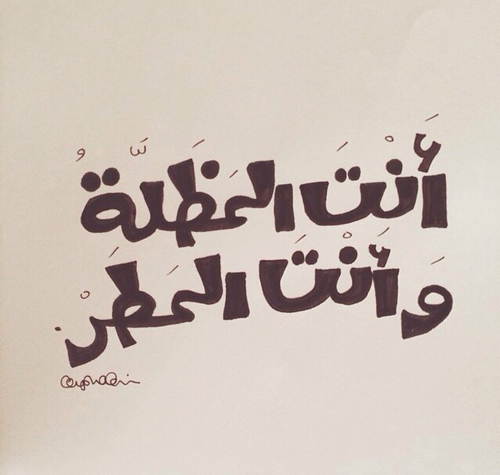 أَنْتَ المَظَلَّةُ
وَ أَنْتَ المَطَرْ